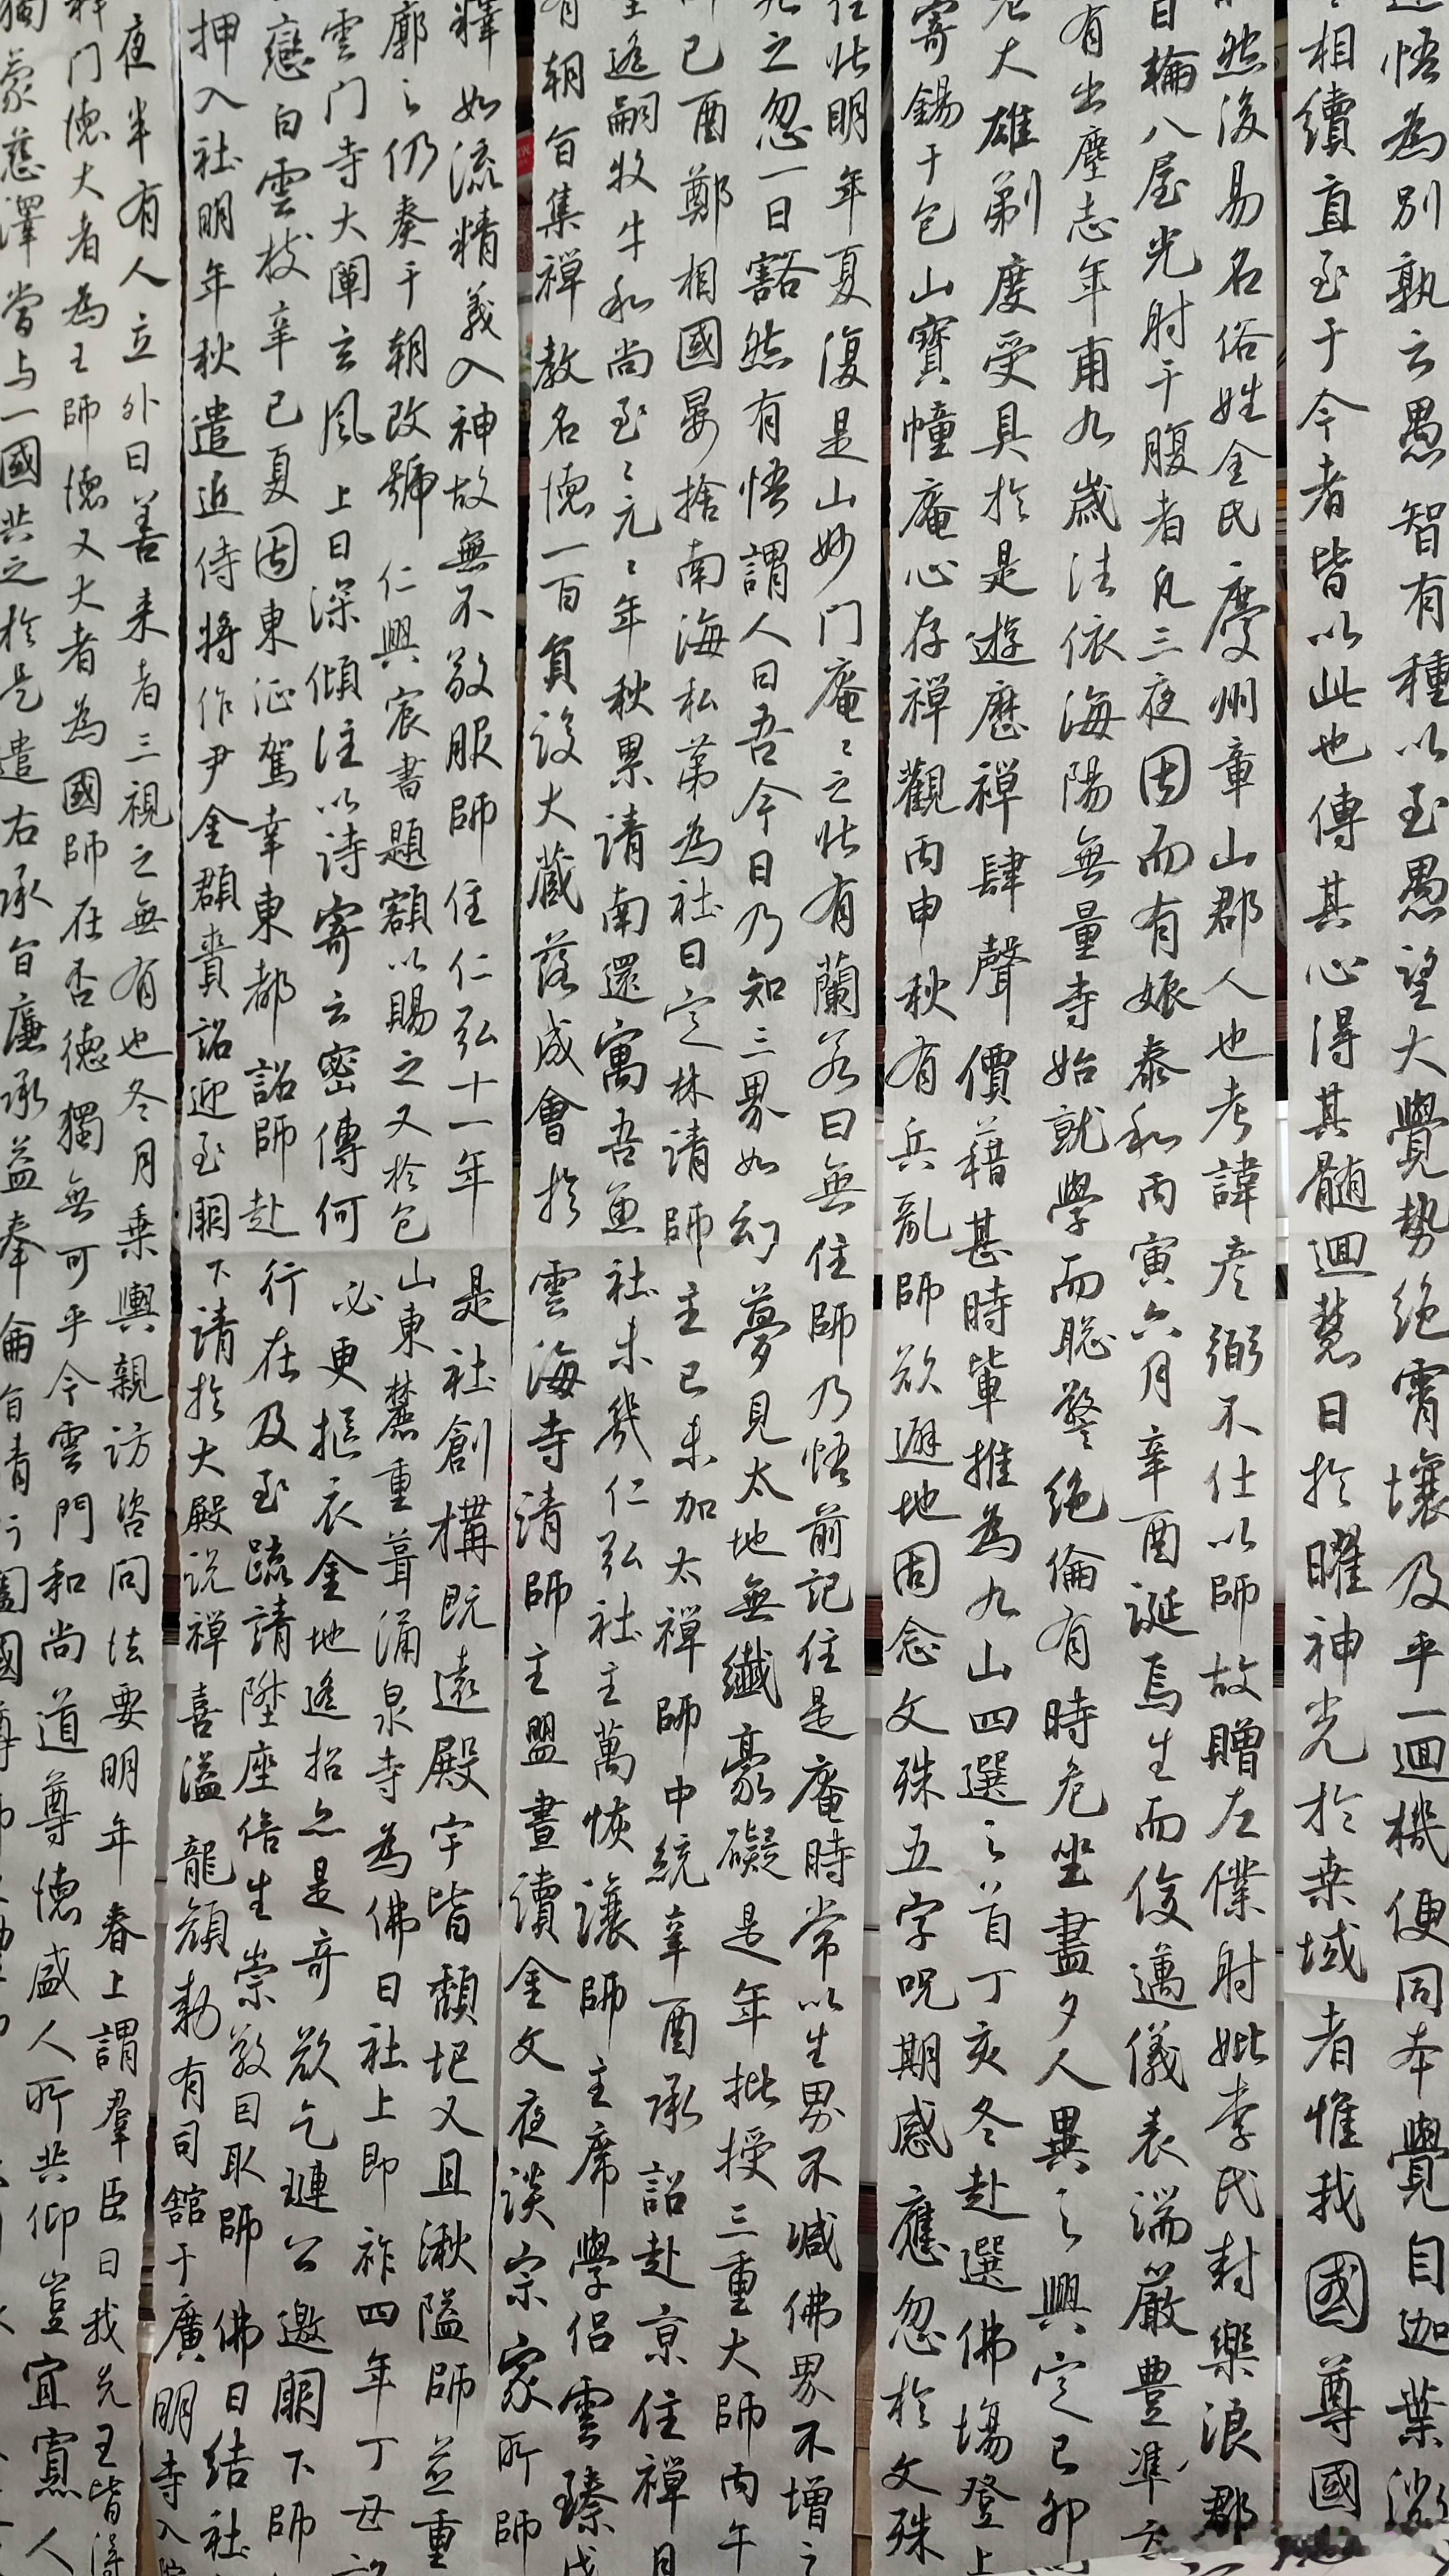 悟為別孰云愚智有種以至愚望大覺勢絕霄壤及乎一迴機便同本覺自迦葉
相續直至于今者皆以此也傳其心得其髓迴慧日於曜神光於桒域者惟我國尊國
然後易名俗姓金氏慶州章山郡人也考諱彥弼不仕以師故贈左僕射妣李氏封樂浪郡
日輪入屋光射于腹者凡三夜因而有娠泰和丙寅六月辛酉誕焉生而俊邁儀表端嚴豊準
有出塵志年甫九歲法依海陽無量寺始就學而聡警絕倫有時危坐盡夕人異之興定己卯
大雄剃度受具於是遊歷禪肆聲價藉甚時輩推為九山四選之首丁亥冬赴選佛場登上
寄錫于包山寶幢庵心存禪觀丙申秋有兵亂師欲避地因念文殊五字呪期感應忽於文殊
住此明年夏復是山妙门庵之北有蘭若曰無住師乃悟前記住是庵時常以生界不減佛界不增之
之忽一日豁然有悟謂人曰吾今日乃知三界如幻夢見太地無纖豪礙是年批授三重大師丙午
已酉鄭相國晏捨南海私第為社曰定林請師主已未加太禪師中統辛酉承詔赴京住禪月
遙嗣牧牛和尚至元年秋累请南還寓吾魚社未幾仁弘社主萬恢讓師主席學侶雲臻
有朝旨集禪教名德一百負設大藏落成會於雲海寺請師主盟晝讀金文夜談宗家所師
釋如流精義入神故無不敬服師住仁弘十一年是社創構既遠殿宇皆頹圯又且湫隘師並重
廓之仍奏于朝改號仁興宸書題額以賜之又於包山東麓重葺涌泉寺為佛日社上即祚四年丁丑
雲门寺大闡玄風上日深傾注以诗寄云密傳何必更摳衣金地遙招亦是奇欲乞璉公邀闕下師
戀白雲枝辛已夏因東征駕幸東都詔師赴行在及至疏請陞座倍生崇敬因取師佛日結社
押入社明年秋遣近侍将作尹金頵賫詔迎至闕下请於大殿説禪喜溢龍顔勅有司舘于廣明寺入院
夜半有人立外曰善来者三視之無有也冬月乗輿親访咨问法要明年春上謂羣臣曰我先王皆得
释门德大者為王師德又大者為國師在否德獨無可乎今雲門和尚道尊德盛人所共仰豈宜寡人
獨蒙慈澤當与一國共之於是遣右承旨廉承益奉倫旨